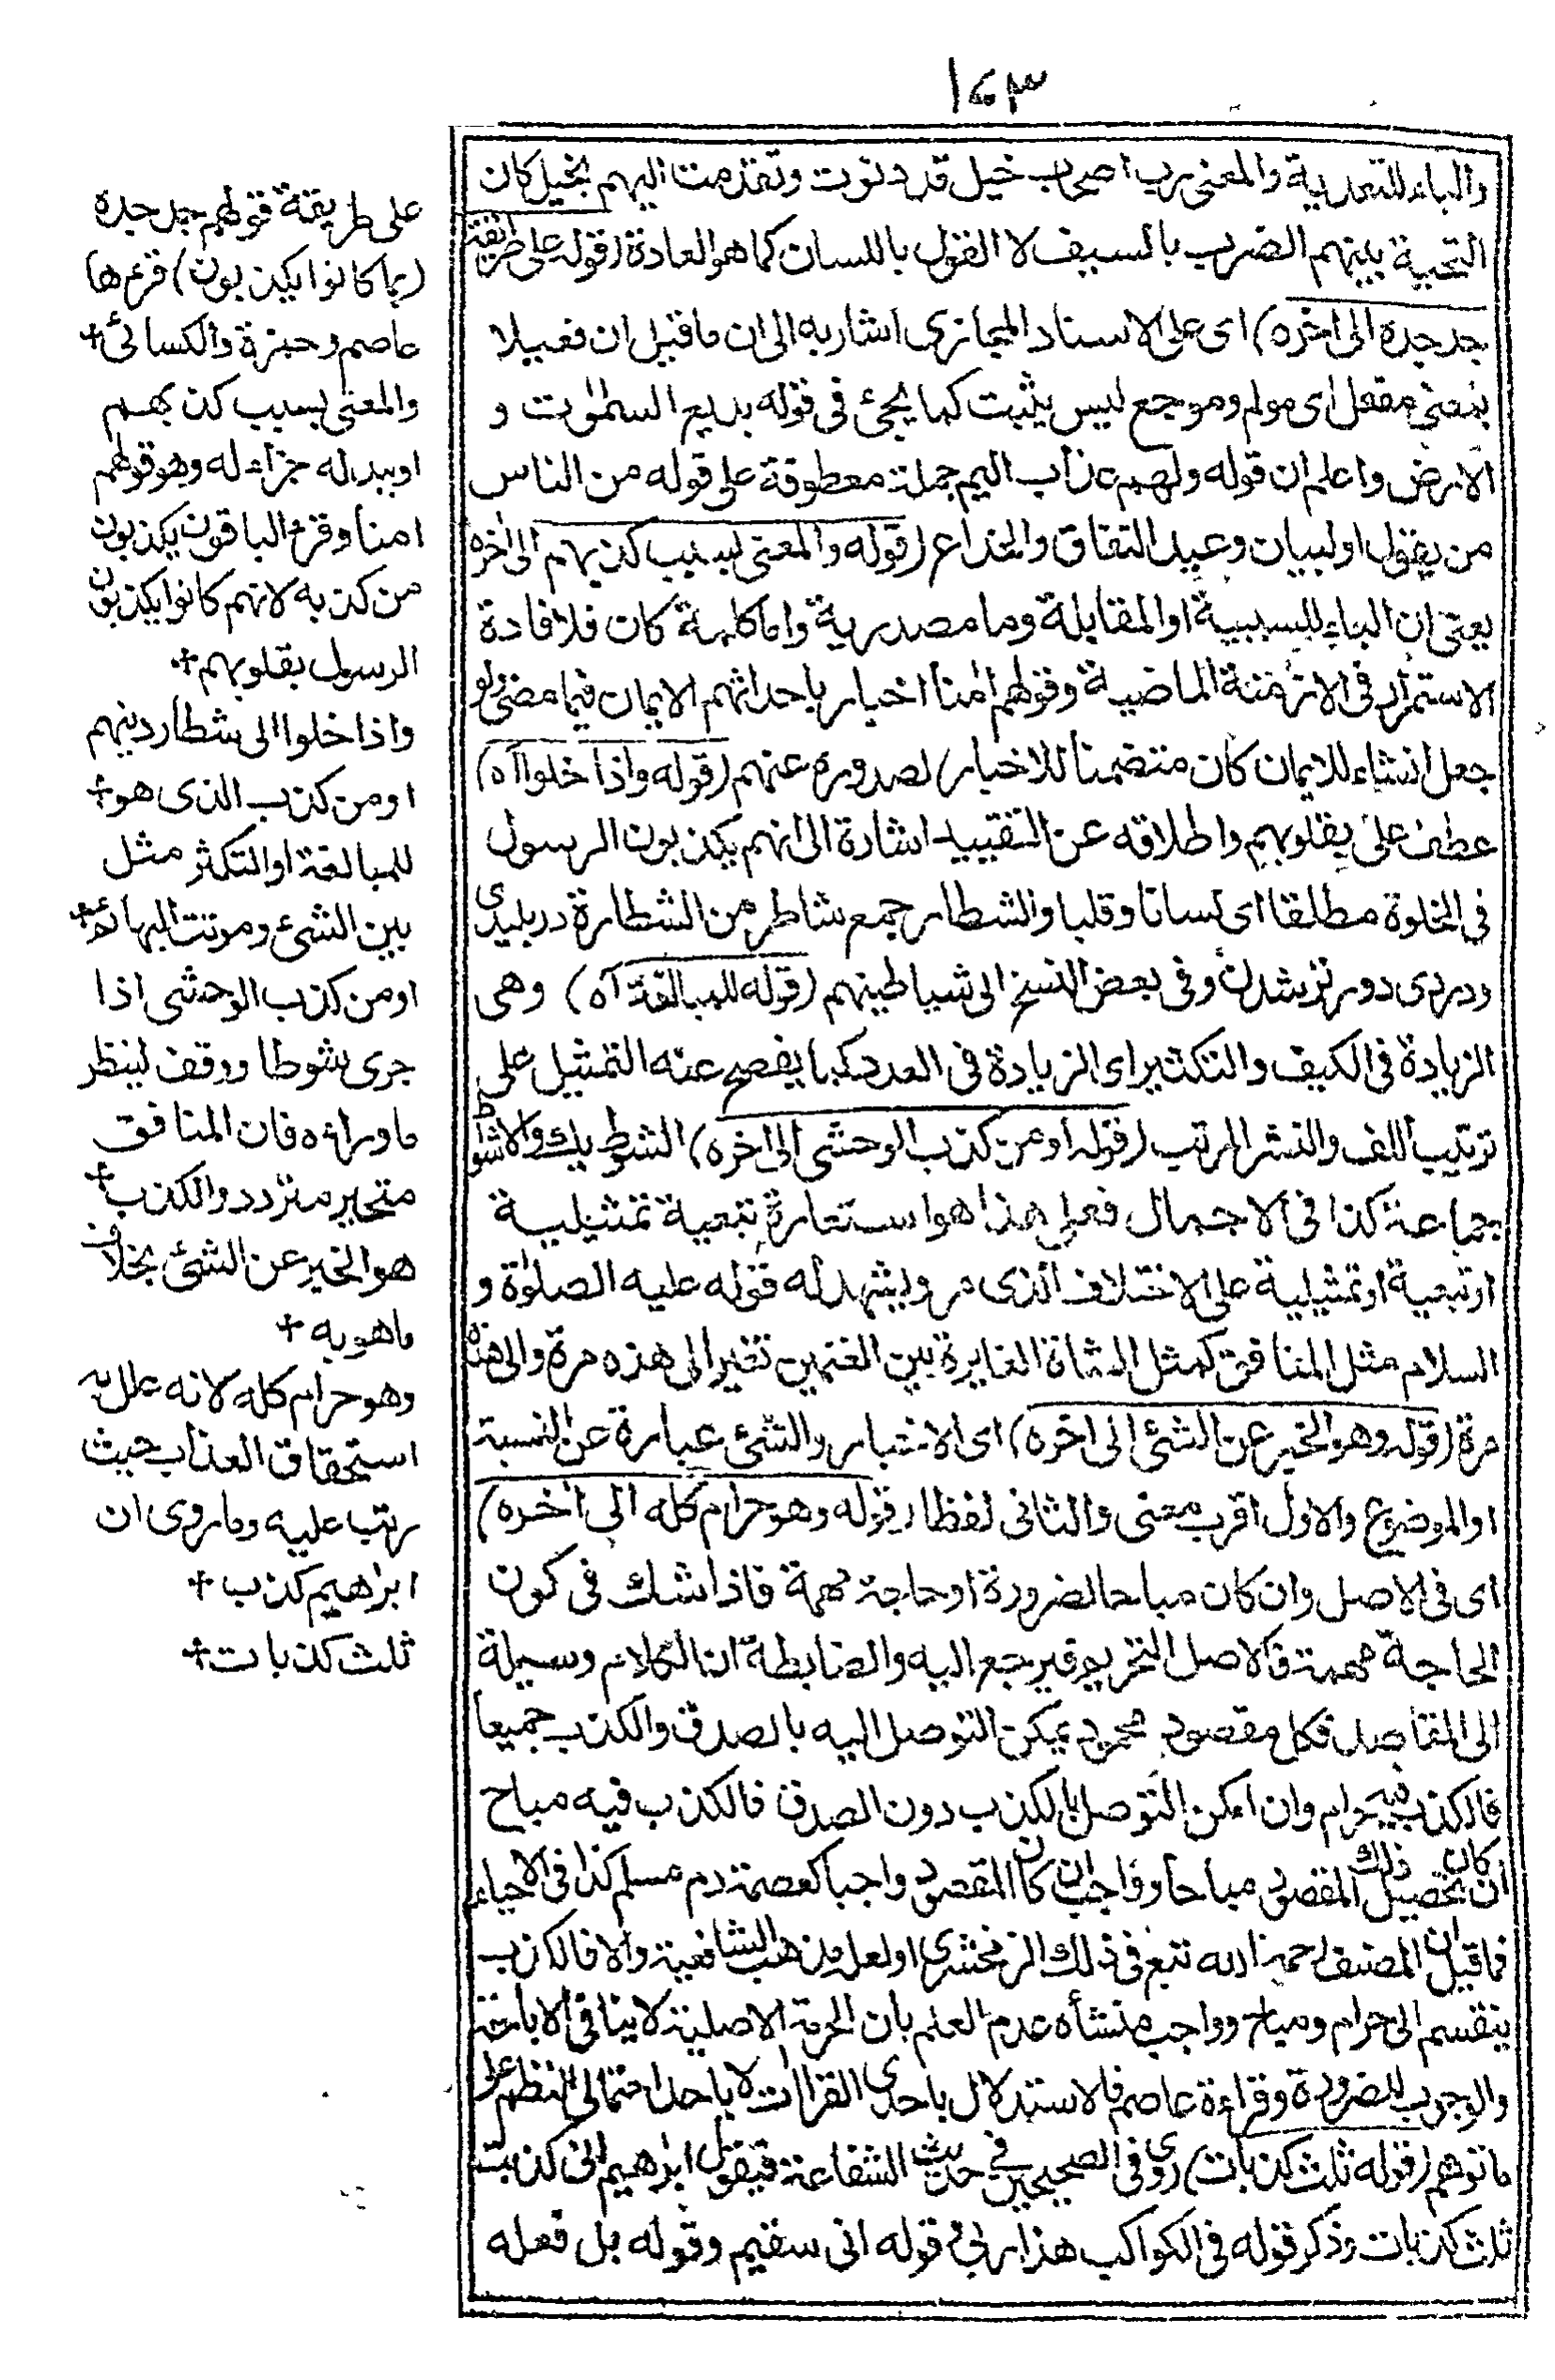 ١٤٣
والباء للتعدية والمعنى رب اصحاب خيل قد دنوت وتقدمت اليهم بخيل كان
التحية بينهم الضرب بالسيف لا القول باللسان كما هو العادة (قوله على طريقة
جد جده الى اخره) اى على الاسناد المجازى اشار به الى ان ما قيل ان فعيلا
بمعنى مفعل اى مولم وموجع ليس يثبت كما يجئ فى قوله بديع السمٰوٰت و
الارض واعلم ان قوله ولهم عذاب اليم جملة معطوفة على قوله من الناس
من يقول او لبيان وعيد النفاق والخداع (قوله والمعنى بسبب كذبهم الى اخره
يعنى ان الباء للسببية او المقابلة وما مصدرية واما كلمة كان فلافادة
الاستمرار فى الازمنة الماضية وقولهم اٰمنا اخبار باحداثهم الايمان فيما مضى ولو
جعل انشاء للايمان كان متضمنا للاخبار لصدوره عنهم (قوله واذا خلوا اه)
عطف على بقلوبهم واطلاقه عن التقييد اشارة الى انهم يكذبون الرسول
فى الخلوة مطلقا اى لسانا وقلبا والشطار جمع شاطر من الشطارة در پليدى
ودردى دور تر شدن وفى بعض النسخ الى شياطينهم (قوله للمبالغة اه) وهى
الزيادة فى الكيف والتكثير اى الزيادة فى العدد كما يفصح عنه التمثيل على
ترتيب اللف والنشر المرتب (قوله او من كذب الوحشى الى اخره) الشوط يك والاشواط
جماعة كذا فى الاجمال فعلى هذا هو استعارة تبعية تمثيلية
او تبعية او تمثيلية على الاختلاف الذى مر ويشهد له قوله عليه الصلوٰة و
السلام مثل المنافق كمثل الشاة العايرة بين الغنمين تعير الى هذه مرة والى هذه
مرة (قوله وهو الخبر عن الشئ الى اخره) اى الاخبار والشئ عبارة عن النسبة
او الموضوع والاول اقرب معنى والثانى لفظا (قوله وهو حرام كله الى اخره)
اى فى الاصل وان كان مباحا لضرورة او حاجة مهمة فاذا شك فى كون
الحاجة مهمة فالاصل التحريم فيرجع اليه والضابطة ان الكلام وسيلة
الى المقاصد فكل مقصود محمود يمكن التوصل اليه بالصدق والكذب جميعا
فالكذب فيه حرام وان امكن التوصل بالكذب دون الصدق فالكذب فيه مباح
ان كان تحصيل ذلك المقصود مباحا وواجب ان كان المقصود واجبا كعصمة دم مسلم كذا فى الاحياء
فما قيل ان المصنف رحمه الله تبع فى ذلك الزمخشرى او لعل مذهب الشافعية والا فالكذب
ينقسم الى حرام ومباح وواجب منشأه عدم العلم بان الحرمة الاصلية لا ينافى الاباحة
والوجوب للضرورة وقراءة عاصم فالاستدلال باحدى القراات لا باحد احتمالى النظم على
ما توهم (قوله ثلث كذبات) روى فى الصحيحين فى حديث الشفاعة فيقول ابرهيم انى كذبت
ثلث كذبات وذكر قوله فى الكواكب هذا ربى وقوله انى سقيم وقوله بل فعله
على طريقة قولهم جد جده
(بما كانوا يكذبون) قرءها
عاصم وحمزة والكسائى +
والمعنى بسبب كذبهم
او ببدله جزاء له وهو قولهم
امنا وقرء الباقون يكذبون
من كذبه لانهم كانوا يكذبون
الرسول بقلوبهم +
واذا خلوا الى شطار دينهم
او من كذب الذى هو +
للمبالغة او التكثر مثل
بين الشئ وموتت البهائم +
او من كذب الوحشى اذا
جرى شوطا ووقف لينظر
ما وراءه فان المنافق
متحير متردد والكذب +
هو الخبر عن الشئ بخلاف
ماهو به +
وهو حرام كله لانه علل به
استحقاق العذاب حيث
رتب عليه وما روى ان
ابراهيم كذب +
ثلث كذبات +